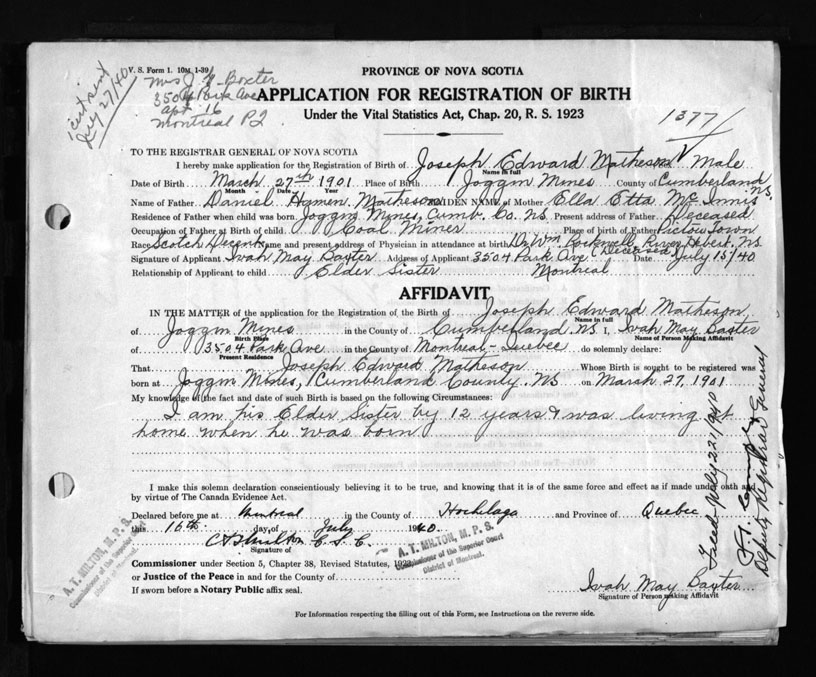 V. S. Form 1. 10M. 1-39
Mrs J. Baxter
3504 Park Ave
apt 16
Montreal P2
cert sent
July 27/40
PROVINCE OF NOVA SCOTIA
APPLICATION FOR REGISTRATION OF BIRTH
Under the Vital Statistics Act, Chap. 20, R. S. 1923
1377
TO THE REGISTRAR GENERAL OF NOVA SCOTIA
I hereby make application for the Registration of Birth of Joseph Edward Matheson Male
Name in full
Date of Birth March 27th 1901 Place of Birth Joggin Mines County of Cumberland NS.
Month Date Year
Name of Father Daniel Hymen Matheson MAIDEN NAME of Mother Ella Etta McInnis
Residence of Father when child was born Joggin Mines, Cumb. Co. NS Present address of Father Deceased
Occupation of Father at Birth of child Coal Miner Place of birth of Father Pictou Town
Race Scotch Decent Name and present address of Physician in attendance at birth Dr Wm Rockwell, River Hebert, NS
(Deceased)
Signature of Applicant Ivah May Baxter Address of Applicant 3504 Park Ave Date July 15/40
Relationship of Applicant to child Elder Sister Montreal
AFFIDAVIT
IN THE MATTER of the application for the Registration of the Birth of Joseph Edward Matheson
Name in full
of Joggin Mines in the County of Cumberland NS I, Ivah May Baxter
Birth Place Name of Person Making Affidavit
of 3504 Park Ave in the County of Montreal-Quebec do solemnly declare:
Present Residence
That Joseph Edward Matheson Whose Birth is sought to be registered was
born at Joggin Mines, Cumberland County. NS on March 27, 1901
My knowledge of the fact and date of such Birth is based on the following Circumstances:
I am his Elder Sister by 12 years & was living at
home when he was born
I make this solemn declaration conscientiously believing it to be true, and knowing that it is of the same force and effect as if made under oath and
by virtue of The Canada Evidence Act.
Declared before me at Montreal in the County of Hochelaga and Province of Quebec
this 16th day of July 1940.
A T Milton C. S. C.
Signature of
A. T. MILTON, M. P. S.
Commissioner of the Superior Court
District of Montreal.
Commissioner under Section 5, Chapter 38, Revised Statutes, 1923
or Justice of the Peace in and for the County of
If sworn before a Notary Public affix seal.
A. T. MILTON, M. P. S.
Commissioner of the Superior Court
District of Montreal.
Ivah May Baxter
Signature of Person making Affidavit
For Information respecting the filling out of this Form, see Instructions on the reverse side.
July 22/1940
Deputy Registrar General